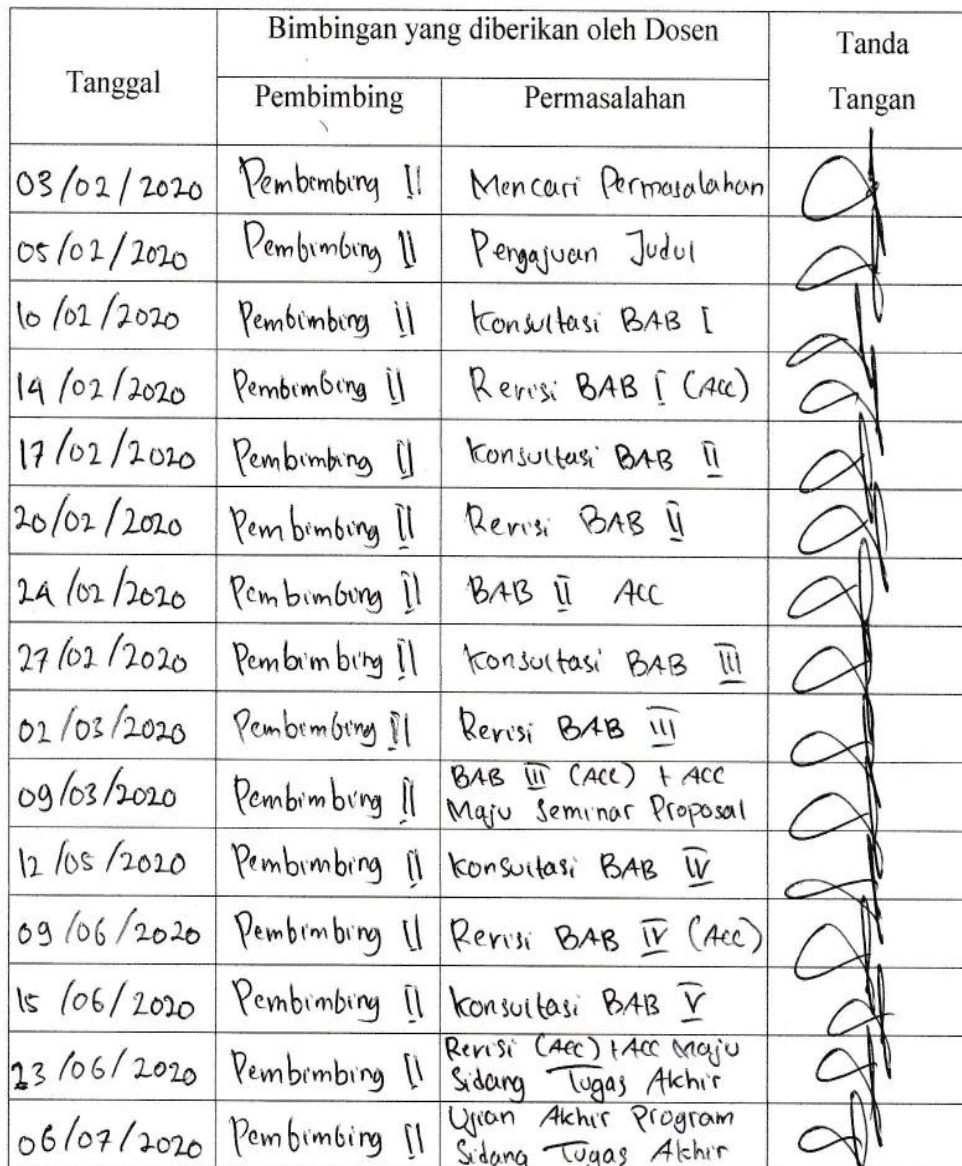 Tanggal
Bimbingan yang diberikan oleh Dosen
Pembimbing
Permasalahan
Tanda
Tangan
03/02/2020 Pembimbing II Mencari Permasalahan
05/02/2020 Pembimbing II Pengajuan Judul
10/02/2020 Pembimbing II Konsultasi BAB I
14/02/2020 Pembimbing II Revisi BAB I (Acc)
17/02/2020 Pembimbing II Konsultasi BAB II
20/02/2020 Pembimbing II Revisi BAB II
24/02/2020 Pembimbing II BAB II Acc
27/02/2020 Pembimbing II Konsultasi BAB III
02/03/2020 Pembimbing II Revisi BAB III
09/03/2020 Pembimbing II BAB III (Acc) + ACC
Maju Seminar Proposal
12/05/2020 Pembimbing II Konsultasi BAB IV
09/06/2020 Pembimbing II Revisi BAB IV (Acc)
15/06/2020 Pembimbing II Konsultasi BAB V
23/06/2020 Pembimbing II Revisi (Acc) + Acc Maju
Sidang Tugas Akhir
06/07/2020 Pembimbing II Ujian Akhir Program
Sidang Tugas Akhir